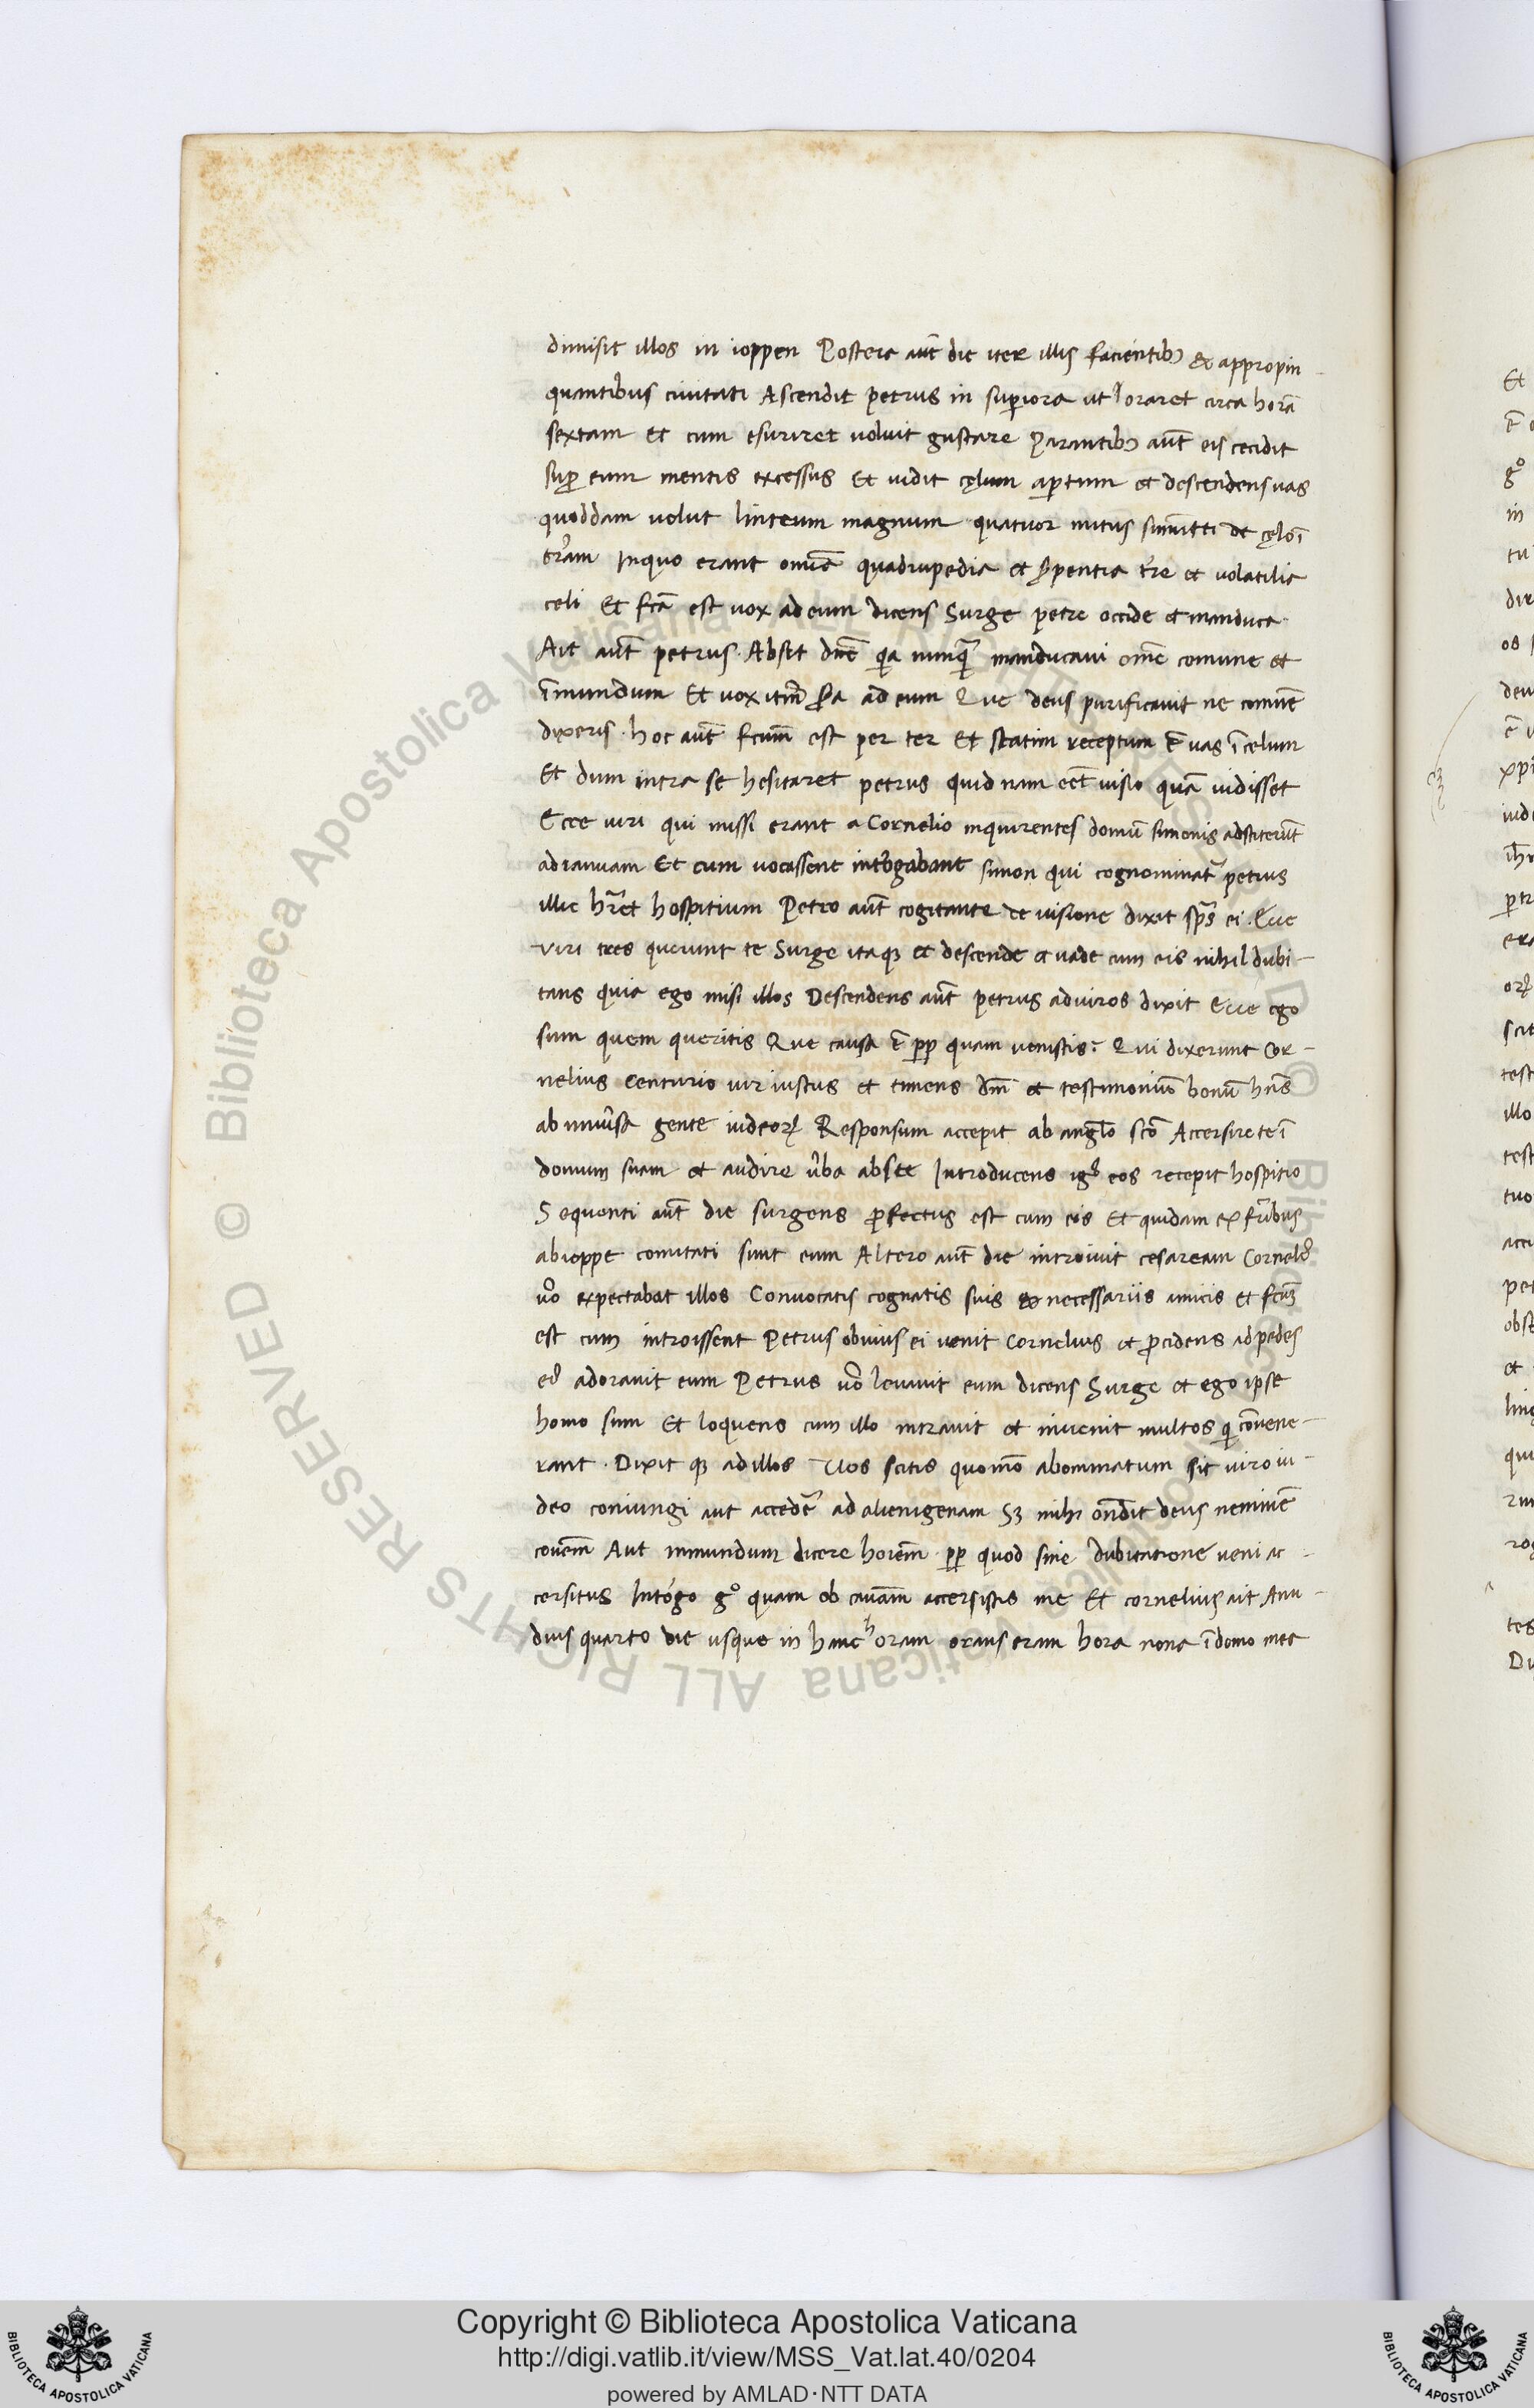 dimisit illos in ioppen Postera aūt die iter illis facientibꝫ & appropin-
quantibus ciuitati Ascendit petrus in suꝑiora ut oraret circa horā
sextam Et cum esuriret uoluit gustare Parantibꝫ aūt eis cecidit
suꝑ eum mentis excessus Et uidit cęlum aꝑtum et descendens uas
quoddam uelut linteum magnum quatuor initus summitti de cęlo ī
terram Inquo erant omnia quadrupedia et serpentia tr̄e et volatilia
celi Et fc̄a est uox ad eum dicens Surge petre occide et manduca
Ait aūt petrus. Absit dn̄e qia nunq̄ manducaui om̄e comune et
īmundum Et uox itm̄ sc̄da ad eum Que deus purificauit ne comune
dixeris. hoc aūt fcum̄ est per ter Et statim receptum ē uas ī celum
Et dum intra se hesitaret petrus quid nam eēt uisio quā uidisset
Ecce uiri qui missi erant a Cornelio inquirentes domū simonis adstiterūt
ad ianuam Et cum uocassent int̄rogabant simon qui cognominat̄ petrus
illic hr̄et hospitium Petro aūt cogitante de uisione dixit sp̄s ei. Ecce
viri tres querunt te Surge itaqꝫ et descende et uade cum eis nihil dubi-
tans quia ego misi illos Descendens aūt petrus ad uiros dixit Ecce ego
sum quem queritis Que causa ē pp̄ quam uenistis? Qui dixerunt Cor-
nelius Centurio uir iustus et timens dm̄ et testimonium bonū hn̄s
ab uniūsa gente iudeoꝝ Responsum accepit ab angl̄o sc̄o Accersire te ī
domum suam et audire ūba abs te Introducens igr̄ eos recepit hospitio
Sequenti aūt die surgens ꝓfectus est cum eis Et quidam ex fr̄ibus
ab ioppe comitati sunt eum Altero aūt die introiuit cesaream Corneliꝰ
uo̅ expectabat illos Conuocatis cognatis suis & necessariis amicis Et fcum̄
est cum introissent Petrus obuius ei uenit Cornelius et ꝓcidens ad pedes
eiꝰ adorauit eum Petrus uo̅ leuauit eum dicens Surge et ego ipse
homo sum Et loquens cum illo intrauit et inuenit multos qi cōuene-
rant. Dixit qꝫ ad illos Uos scitis quomō abominatum sit uiro iu-
deo coniungi aut accedēr ad alienigenam Sꝫ mihi ōndit deus neminē
coūem̄ Aut inmundum dicere hoiem̄ pp̄ quod sine dubitatione ueni ac-
cersitus Int̄ogo gͦ quam ob cauam̄ accersistis me Et cornelius ait Anu-
dius quarto die usque in hanc horam orans eram hora nona ī domo mea
Copyright © Biblioteca Apostolica Vaticana
http://digi.vatlib.it/view/MSS_Vat.lat.40/0204
powered by AMLAD·NTT DATA